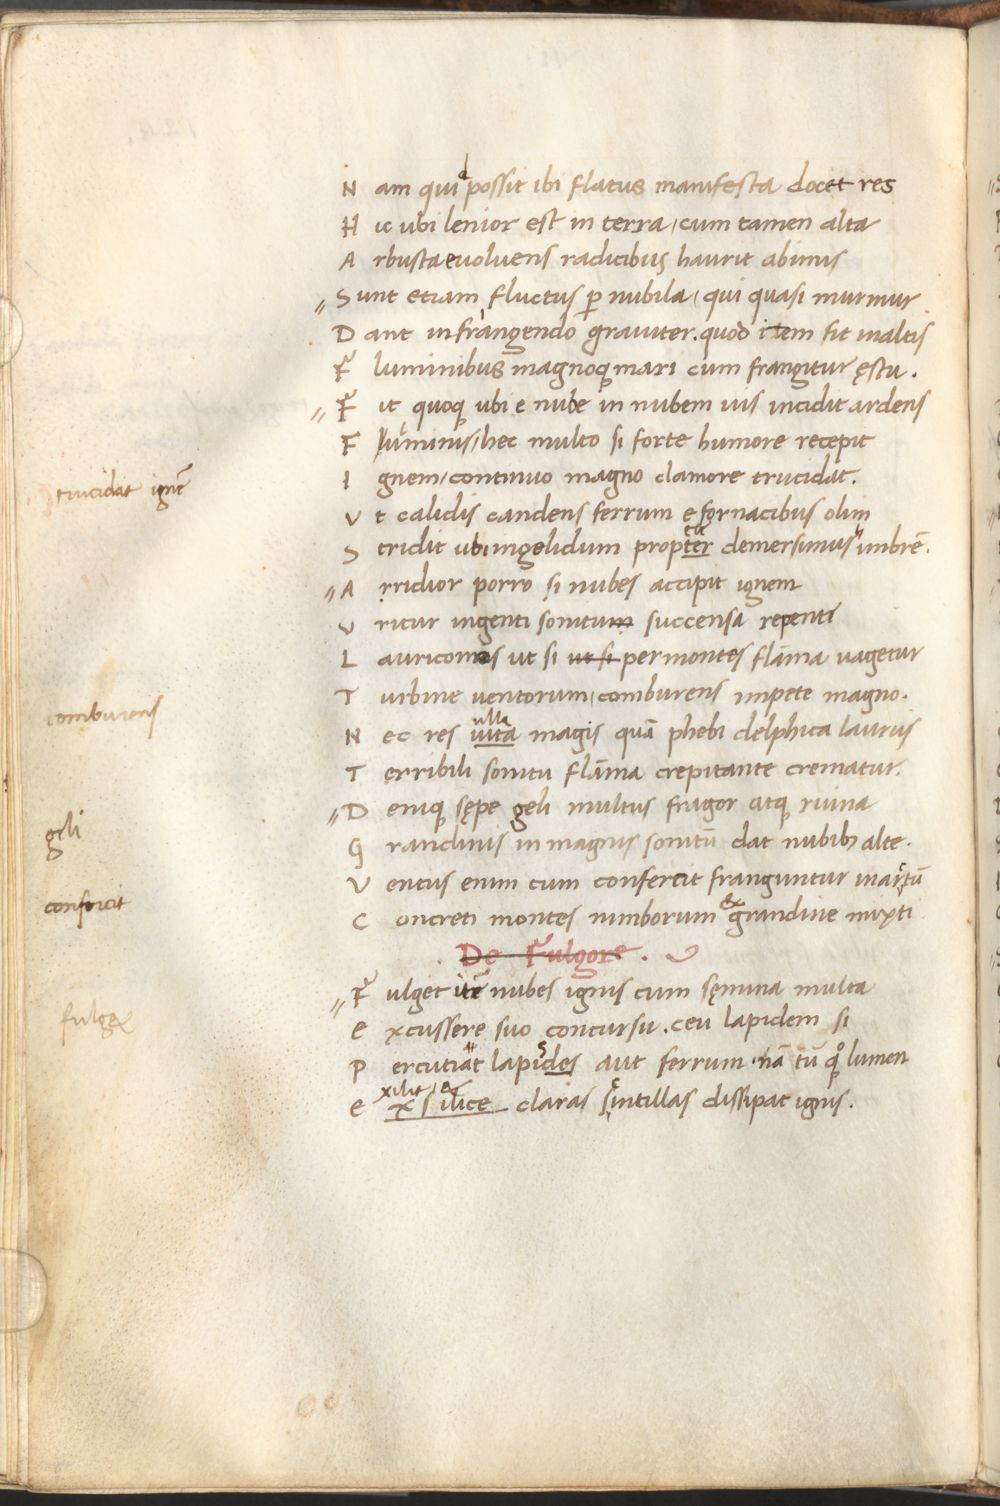 N am quid possit ibi flatus manifesta docet res
H ic ubi lenior est in terra, cum tamen alta
A rbusta evolvens radicibus haurit abimis
S unt etiam fluctus ꝑ nubila, qui quasi murmur
D ant in frangendo graviter. quod item fit inaltis
F luminibus magnoqꝫ mari cum frangitur ęstu.
F it quoqꝫ ubi e nube in nubem vis incidit ardens
F luminis, hec multo si forte humore recepit
I gnem, continuo magno clamore trucidat.
trucidat ignē
V t calidis candens ferrum e fornacibus olim
S tridit ubi in gelidum propter demersimus imbrē.
A rridior porro si nubes accipit ignem
V ritur ingenti sonitum succensa repenti
L auricomos ut si ut si per montes flāma vagetur
T urbine ventorum, comburens impete magno.
comburens
N ec res ulla vita magis quā phebi delphica laurus
T erribili sonitu flāma crepitante crematur.
D eniqꝫ sępe geli multus fragor atqꝫ ruina
geli
G randinis in magnis sonitū dat nubibꝫ alte.
V entus enim cum confercit franguntur inartū
confercit
C oncreti montes nimborum ex grandine mixti
De Fulgore.
F ulget itē nubes ignis cum sęmina multa
fulget
E xcussere suo concursu. ceu lapidem si
P ercutiat lapides aut ferrum. nā tū qꝫ lumen
xilit, &
E x silice claras sintillas dissipat ignis.